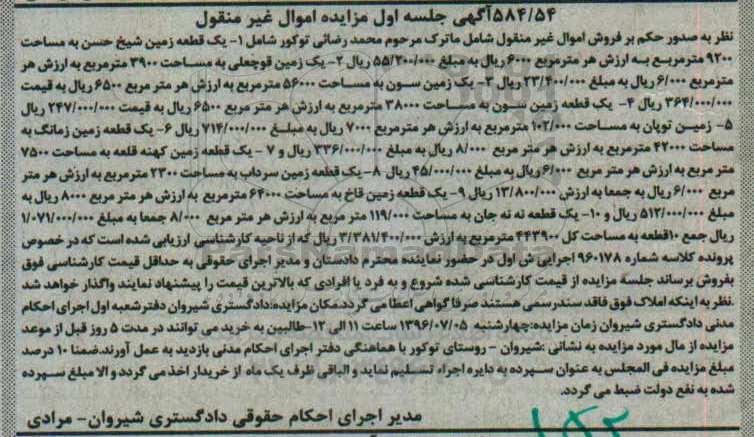 ۵۸۴/۵۴آگهی جلسه اول مزایده اموال غیر منقول
نظر به صدور حکم بر فروش اموال غیر منقول شامل ماترک مرحوم محمد رضائی توکور شامل ۱- یک قطعه زمین شیخ حسن به مساحت
۹۲۰۰ مترمربع به ارزش هر مترمربع ۶۰۰۰ ریال به مبلغ ۵۵/۲۰۰/۰۰۰ ریال ۲- یک زمین قوچعلی به مساحت ۳۹۰۰ مترمربع به ارزش هر
مترمربع ۶/۰۰۰ ریال به مبلغ ۲۳/۴۰۰/۰۰۰ ریال ۳- یک زمین سون به مساحت ۵۶۰۰۰ مترمربع به ارزش هر متر مربع ۶۵۰۰ ریال به قیمت
۳۶۴/۰۰۰/۰۰۰ ریال ۴- یک قطعه زمین سون به مساحت ۳۸۰۰۰ مترمربع به ارزش هر متر مربع ۶۵۰۰ ریال به قیمت ۲۴۷/۰۰۰/۰۰۰ ریال
۵- زمین توپان به مساحت ۱۰۲/۰۰۰ مترمربع به ارزش هر مترمربع ۷۰۰۰ ریال به مبلغ ۷۱۴/۰۰۰/۰۰۰ ریال ۶- یک قطعه زمین زمانگه به
مساحت ۴۲۰۰۰ مترمربع به ارزش هر متر مربع ۸/۰۰۰ ریال به مبلغ ۳۳۶/۰۰۰/۰۰۰ ریال و ۷ - یک قطعه زمین کهنه قلعه به مساحت ۷۵۰۰
متر مربع به ارزش هر متر مربع ۶/۰۰۰ ریال به مبلغ ۴۵/۰۰۰/۰۰۰ ریال ۸- یک قطعه زمین سرداب به مساحت ۲۳۰۰ مترمربع به ارزش هر متر
مربع ۶/۰۰۰ ریال به جمعا به ارزش ۱۳/۸۰۰/۰۰۰ ریال ۹- یک قطعه زمین قاخ به مساحت ۶۴۰۰۰ مترمربع به ارزش هر متر مربع ۸۰۰۰ ریال به
مبلغ ۵۱۲/۰۰۰/۰۰۰ ریال و ۱۰- یک قطعه ته ته جان به مساحت ۱۱۹/۰۰۰ متر مربع به ارزش هر متر مربع ۸/۰۰۰ جمعا به مبلغ ۱/۰۷۱/۰۰۰/۰۰۰
ریال جمع ۱۰قطعه به مساحت کل ۴۴۳۹۰۰ مترمربع به ارزش ۳/۳۸۱/۴۰۰/۰۰۰ ریال که از ناحیه کارشناسی ارزیابی شده است که در خصوص
پرونده کلاسه شماره ۹۶۰۱۷۸ اجرایی ش اول در حضور نماینده محترم دادستان و مدیر اجرای حقوقی به حداقل قیمت کارشناسی فوق
بفروش برساند جلسه مزایده از قیمت کارشناسی شده شروع و به فرد یا افرادی که بالاترین قیمت را پیشنهاد نمایند واگذار خواهد شد
.نظر به اینکه املاک فوق فاقد سندرسمی هستند صرفا گواهی اعطا می گردد.مکان مزایده:دادگستری شیروان دفترشعبه اول اجرای احکام
مدنی دادگستری شیروان زمان مزایده:چهارشنبه ۱۳۹۶/۰۷/۰۵ ساعت ۱۱ الی ۱۲-طالبین به خرید می توانند در مدت ۵ روز قبل از موعد
مزایده از مال مورد مزایده به نشانی :شیروان - روستای توکور با هماهنگی دفتر اجرای احکام مدنی بازدید به عمل آورند.ضمنا ۱۰ درصد
مبلغ مزایده فی المجلس به عنوان سپرده به دایره اجراء تسلیم نماید و الباقی ظرف یک ماه از خریدار اخذ می گردد و الا مبلغ سپرده
شده به نفع دولت ضبط می گردد.
مدیر اجرای احکام حقوقی دادگستری شیروان- مرادی